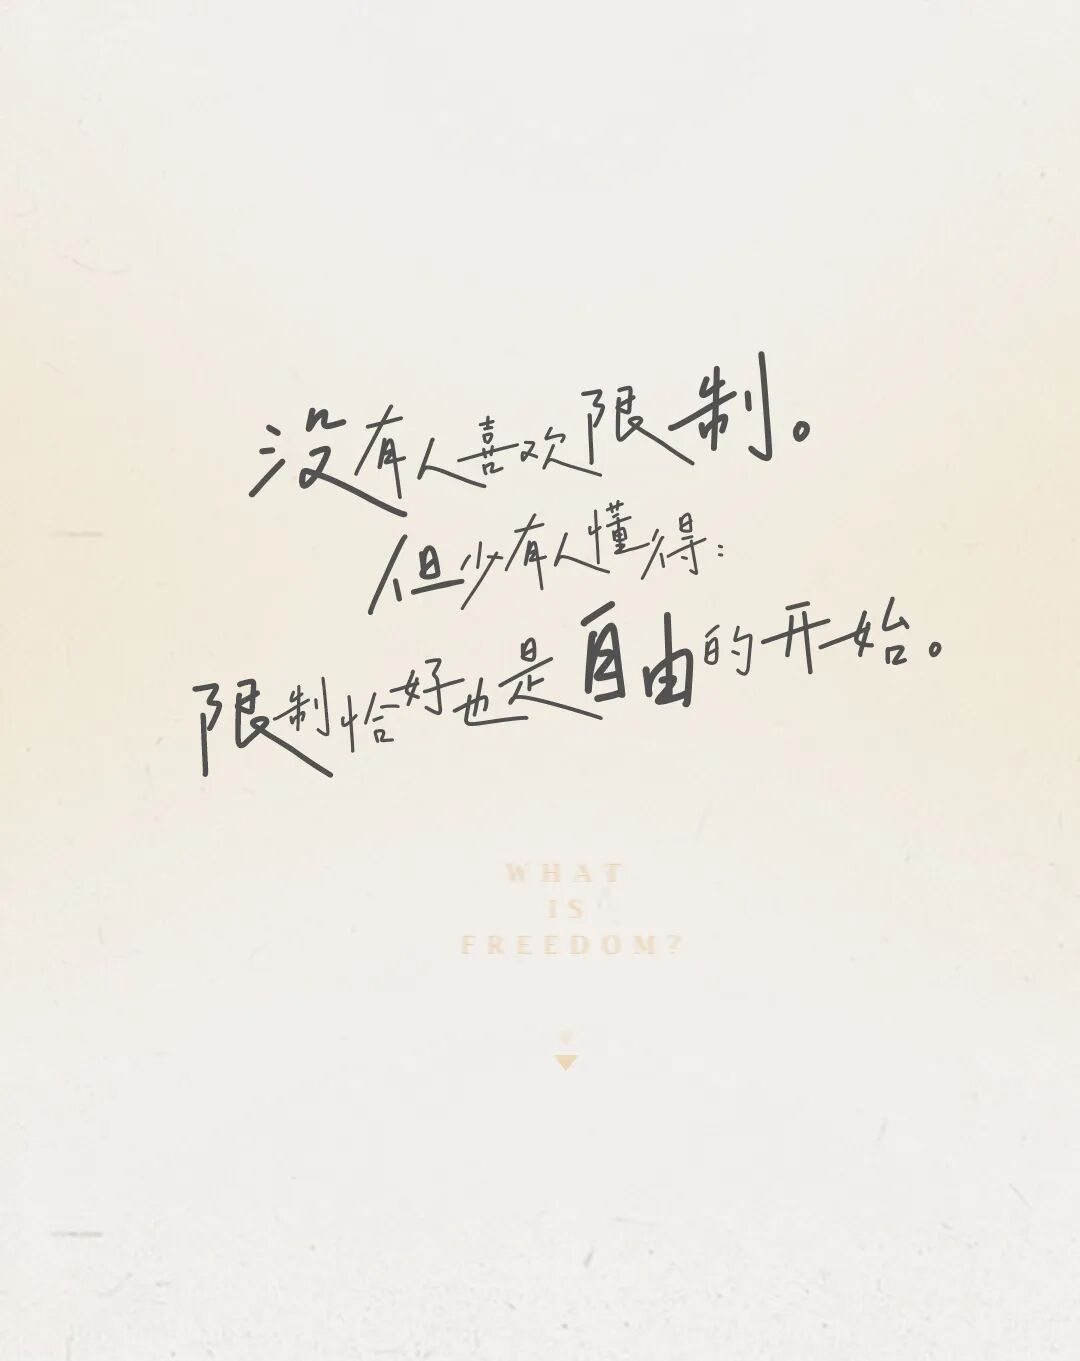 没有人喜欢限制。
但少有人懂得：
限制恰好也是自由的开始。
WHAT
IS
FREEDOM?